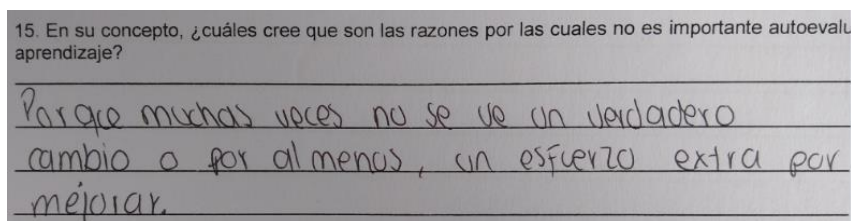 15. En su concepto, ¿cuáles cree que son las razones por las cuales no es importante autoevalu
aprendizaje?
Porque muchas veces no se ve un verdadero
cambio o por al menos, un esfuerzo extra por
mejorar.